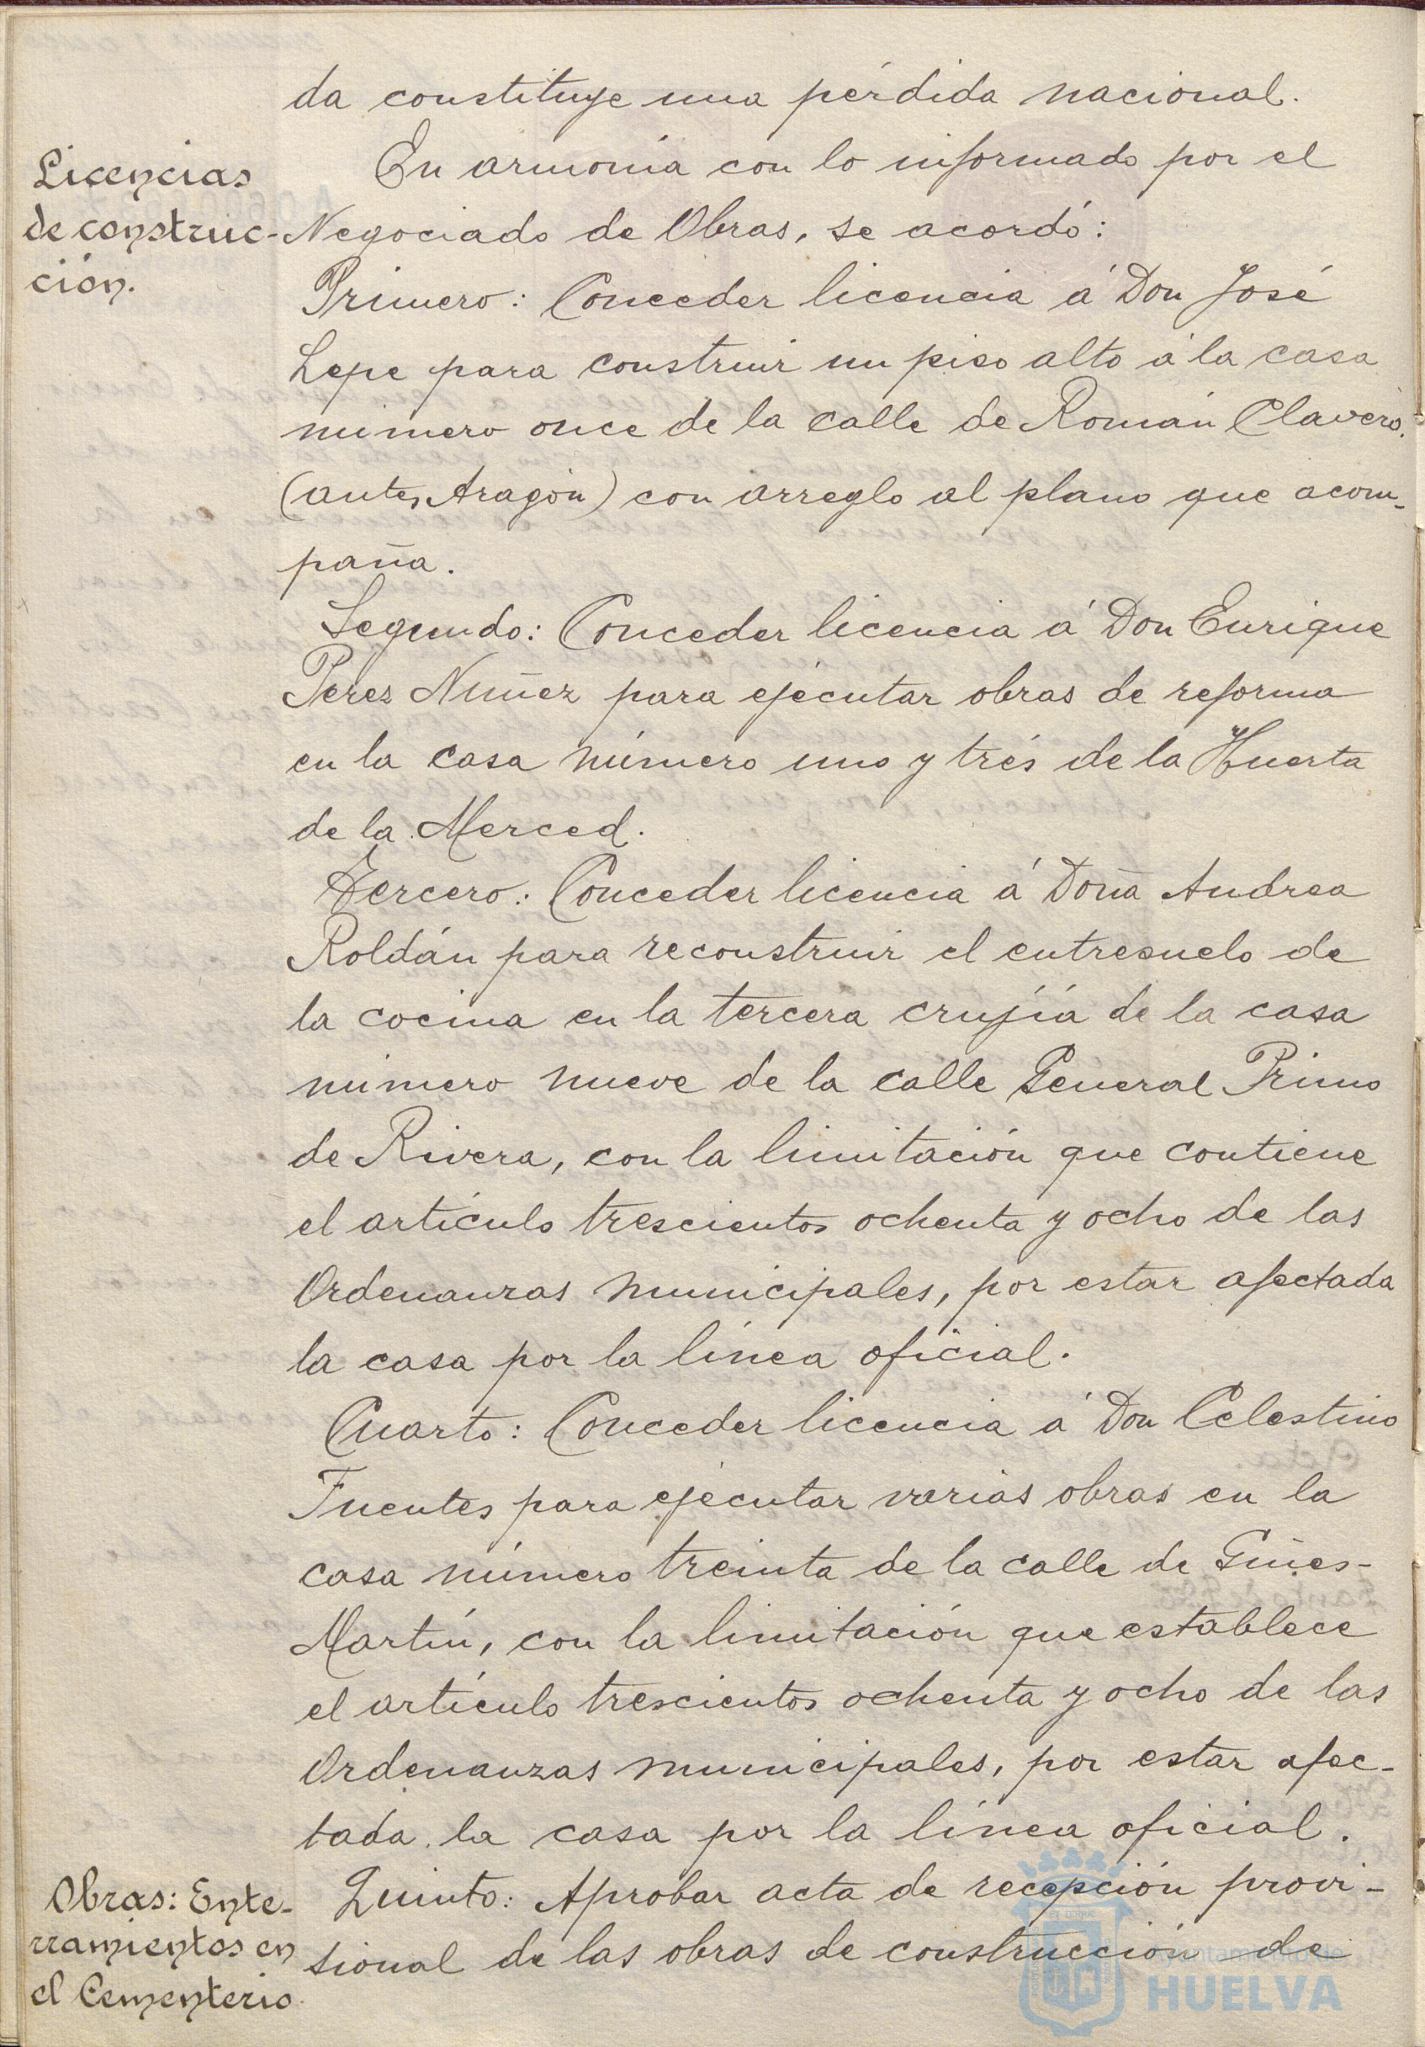 da constituye una pérdida nacional.
Licencias
de construc-
ción.
En armonía con lo informado por el
Negociado de Obras, se acordó:
Primero: Conceder licencia á Don José
Lepe para construir un piso alto á la casa
número once de la calle de Román Clavero.
(antes Aragón) con arreglo al plano que acom-
paña.
Segundo: Conceder licencia á Don Enrique
Perez Nuñez para ejécutar obras de reforma
en la casa número uno y trés de la Huerta
de la Merced.
Tercero: Conceder licencia á Doña Andrea
Roldán para reconstruir el entresuelo de
la cocina en la tercera crujía de la casa
número nueve de la calle General Primo
de Rivera, con la limitación que contiene
el artículo trescientos ochenta y ocho de las
Ordenanzas municipales, por estar afectada
la casa por la línea oficial.
Cuarto: Conceder licencia á Don Celestino
Fuentes para ejécutar varias obras en la
casa número treinta de la calle de Giñes-
Martín, con la limitación que establece
el artículo trescientos ochenta y ocho de las
Ordenanzas municipales, por estar afec-
tada la casa por la línea oficial.
Obras: Ente-
rramientos en
el Cementerio
Quinto: Aprobar acta de recepción provi-
sional de las obras de construcción de
Ayuntamiento de
HUELVA